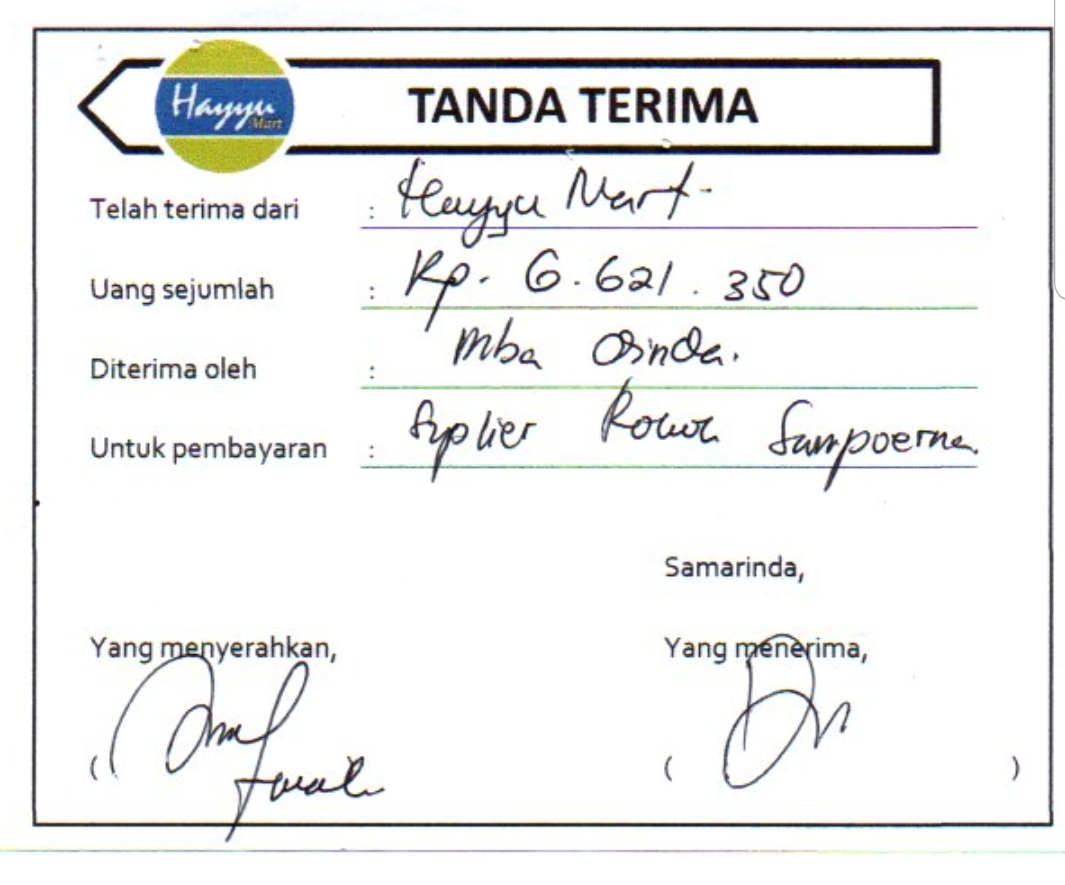 Hayyu
Mart
TANDA TERIMA
Telah terima dari : Hayyu Mart
Uang sejumlah : Rp. 6.621.350
Diterima oleh : Mba
Untuk pembayaran : Suplier Rokok Sampoerna
Samarinda,
Yang menyerahkan,
Yang menerima,
( 
( )